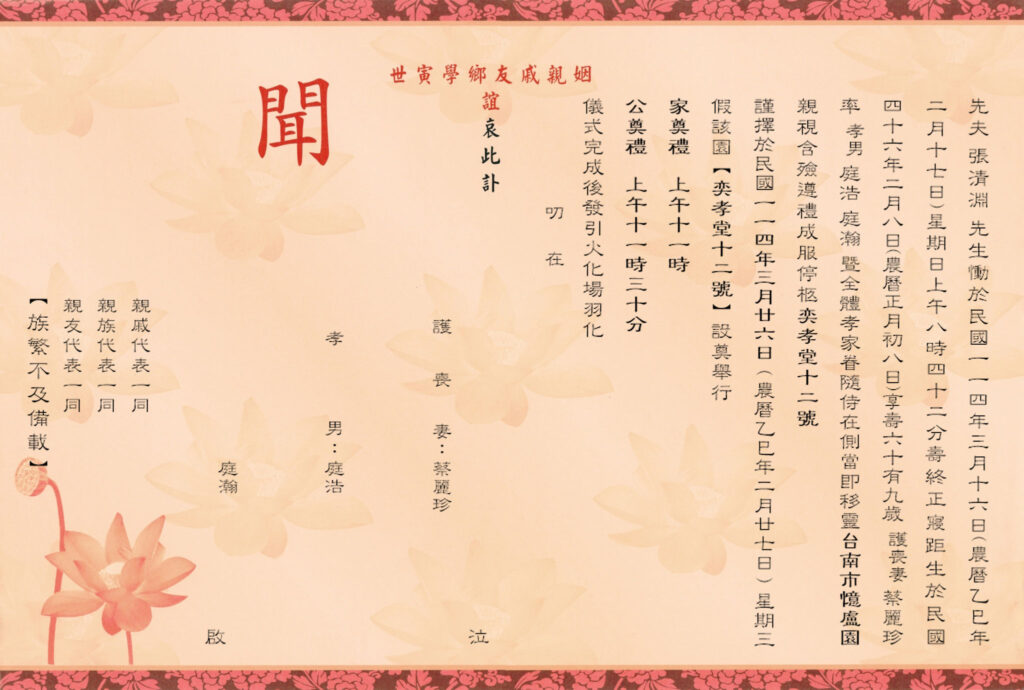 先夫 張清淵 先生慟於民國一一四年三月十六日(農曆乙巳年
二月十七日)星期日上午八時四十二分壽終正寢距生於民國
四十六年二月八日(農曆正月初八日)享壽六十有九歲 護喪妻 蔡麗珍
率 孝男 庭浩 庭瀚 暨全體孝家眷隨侍在側當即移靈台南市憶盧園
親視含殮遵禮成服停柩奕孝堂十二號
謹擇於民國一一四年三月廿六日(農曆乙巳年二月廿七日)星期三
假該園【奕孝堂十二號】設奠舉行
家奠禮 上午十一時
公奠禮 上午十一時三十分
儀式完成後發引火化場羽化
叨在
姻親戚友鄉學寅世
誼哀此訃
聞
護喪妻:蔡麗珍 泣
孝男:庭浩
庭瀚 啟
親戚代表一同
親族代表一同
親友代表一同
【族繁不及備載】